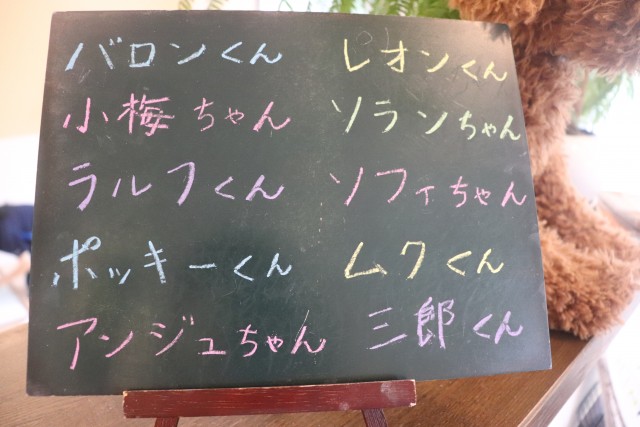 バロンくん
小梅ちゃん
ラルフくん
ポッキーくん
アンジュちゃん
レオンくん
ソランちゃん
ソフィちゃん
ムクくん
三郎くん